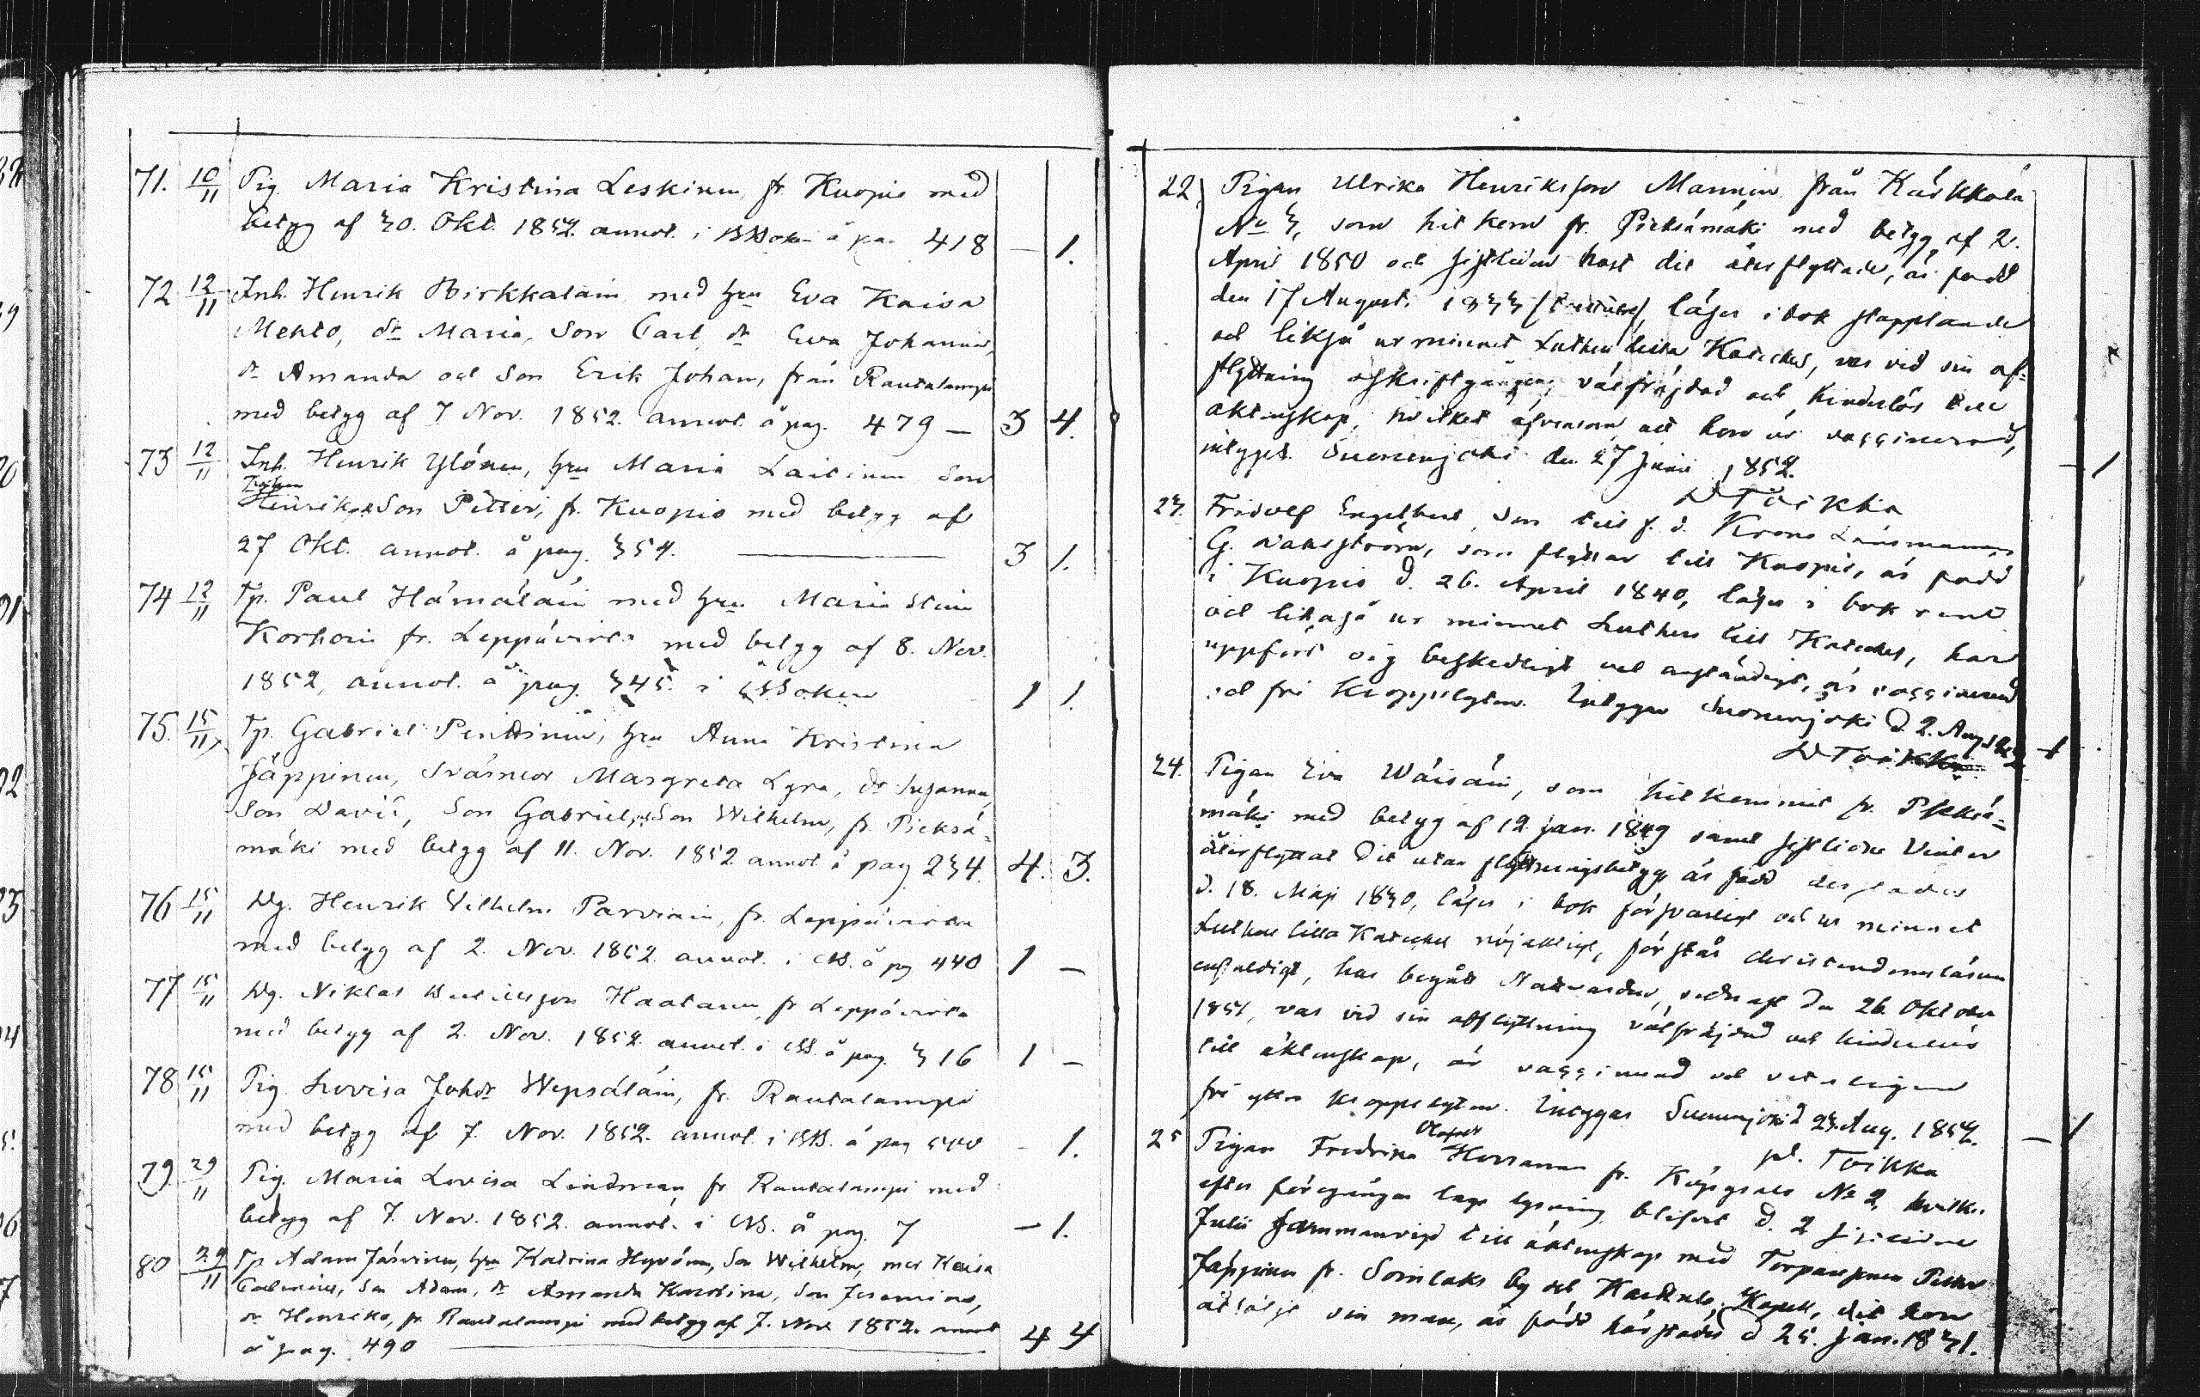 71. 10/11 Pig. Maria Kristina Leskinen, fr. Kuopio med
betyg af 30. Okt. 1852. annot. i å pa. 418 — 1.
72 12/11 Inh. Henrik Pirkkalain med hru Eva Kaisa
Mehto, dr Maria, Son Carl, dr Eva Johanna,
dr Amanda och Son Erik Johan, från Rautalampi
med betyg af 7 Nov. 1852. annot. å pag. 479 — 3 4.
73 12/11 Inh. Henrik Ylönen, hru Maria Laitinen Son
Henrik, Son Petter, fr. Kuopio med betyg af
27 Okt. annot. å pag. 354. — 3 1.
74 12/11 Tp. Paul Hämäläin med hru Maria Stin
Korhoin fr. Leppävirta med betyg af 8. Nov.
1852, annot. å pag. 345. i 1 1.
75. 15/11 Tp. Gabriel Penttinen, hru Anna Kristina
Jäppinen, Svärmor Margreta Lyra, dr Susanna,
Son David, Son Gabriel, Son Wilhelm, fr. Pieksä-
mäki med betyg af 11. Nov. 1852 annot å pag 234. 4. 3.
76 15/11 Dg. Henrik Vilhelm Parviain, fr. Leppävirta
med betyg af 2. Nov. 1852. annot. i å pg 440 1 —
77 15/11 Dg. Niklas Haatain, fr Leppävirta
med betyg af 2. Nov. 1852. annot. i å pag. 316 1 —
78 15/11 Pig. Lovisa Johdr Wepsäläin, fr. Rautalampi
med betyg af 7. Nov. 1852. annot. i å pag - 1.
79. 29/11 Pig. Maria Lovisa Lindman fr Rautalampi med
betyg af 7. Nov. 1852. annot. i å pag. 7 — 1.
80 29/11 Tp Adam Järvinen, hru Katrina Hyvönen, Son Wilhelm, Kaisa
Son Adam, dr Amanda Karolina, Son Jeremias,
dr Henrika, fr Rautalampi med betyg af 7. Nov. 1852. annot
å pag. 490 — 4 4
22. Pigan Ulrika Henriksson Mannin från Kärkkälä
No 3, som hit kom fr. Pieksämäki med betyg af 2.
April 1850 och sistleden höst dit återflyttade, är född
den 17 August. 1833 läser i bok stapplande
och likså ur minnet Luthers lilla Kateches, var vid sin af-
flyttning välfrejdad och hinderlös till
äktenskap, hvilket äfvensom att hon är vaccinerad,
intygas. Suonenjoki den 27 Juni 1852. — 1
D Toikka
23. Fridolf Engelbert, Son till f. d. Krono Länsmannen
G. som flyttar till Kuopio, är född
i Kuopio d. 26. April 1840, läser i bok rent
och likaså ur minnet Luthers lill Kateches, har
uppfört sig beskedligt och anständigt, är vaccinerad
och fri Kroppslyten. Intygar Suonenjoki d. 2. Aug 1852 1
D Toikka
24. Pigan Eva Wäisäin, som hitkommit fr. Pieksä-
mäki med betyg af 12 Jan. 1849 samt sistlidne Vinter
återflyttat dit utan flyttningsbetyg är född derstädes
d. 18. Maj 1830, läser i bok försvarligt och ur minnet
Luthers lilla Kateches nöjaktigt, förstår christendomsläran
enfaldigt, har begått Nattvarden, sednast den 26. Oktober
1851, var vid sin afflyttning välfrejdad och hinderlös
till äktenskap, är vaccinerad och veterligen
fri yttre kroppslyten. Intygar Suonenjoki d 23. Aug. 1852. — 1
Toikka
25 Pigan Fredrika Olofsdr fr. No 2, hvilken
efter föregången laga lysning blifvit d. 2 sistlidne
Julii sammanvigd till äktenskap med Torparsonen Petter
Jäppinen fr. Soinlaks by och Kapell, dit hon
åtföljt sin man, är född härstädes d 25. Jan. 1831.